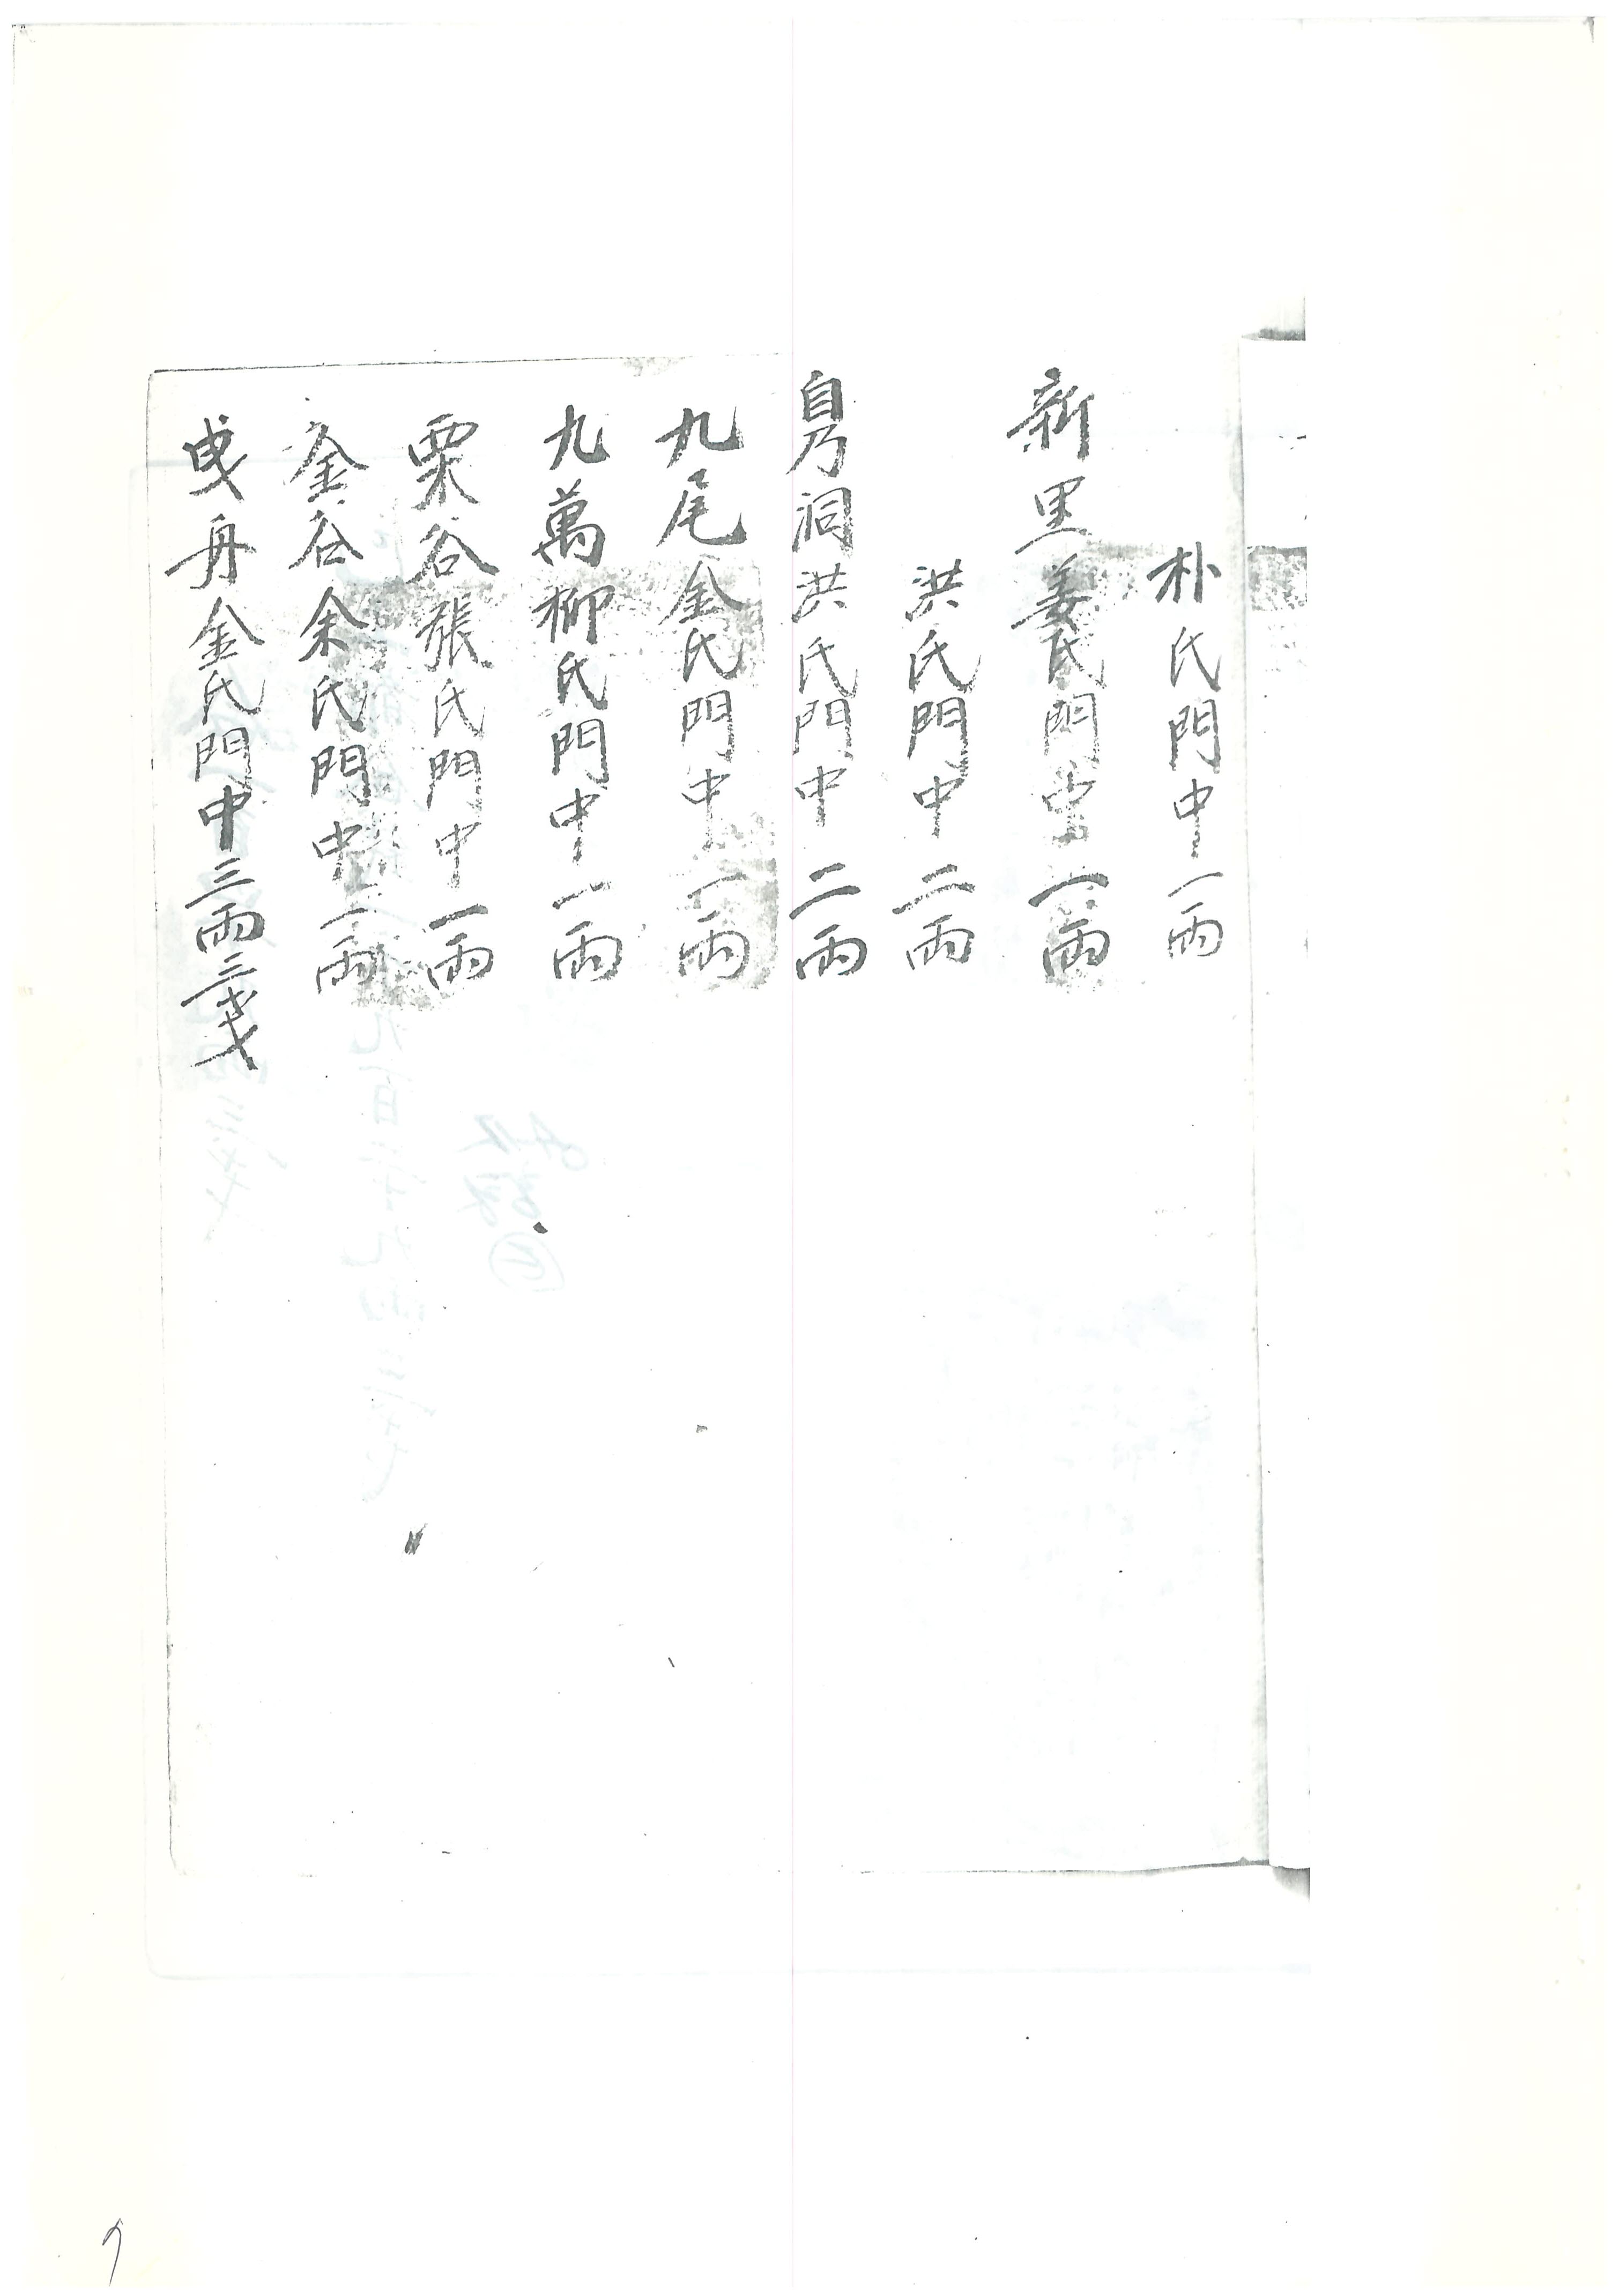 朴氏門中一兩
新里姜氏門中一兩
洪氏門中二兩
洞洪氏門中二兩
九尾金氏門中一兩
九萬柳氏門中一兩
栗谷張氏門中一兩
釜谷余氏門中一兩
曳舟金氏門中三兩三戔